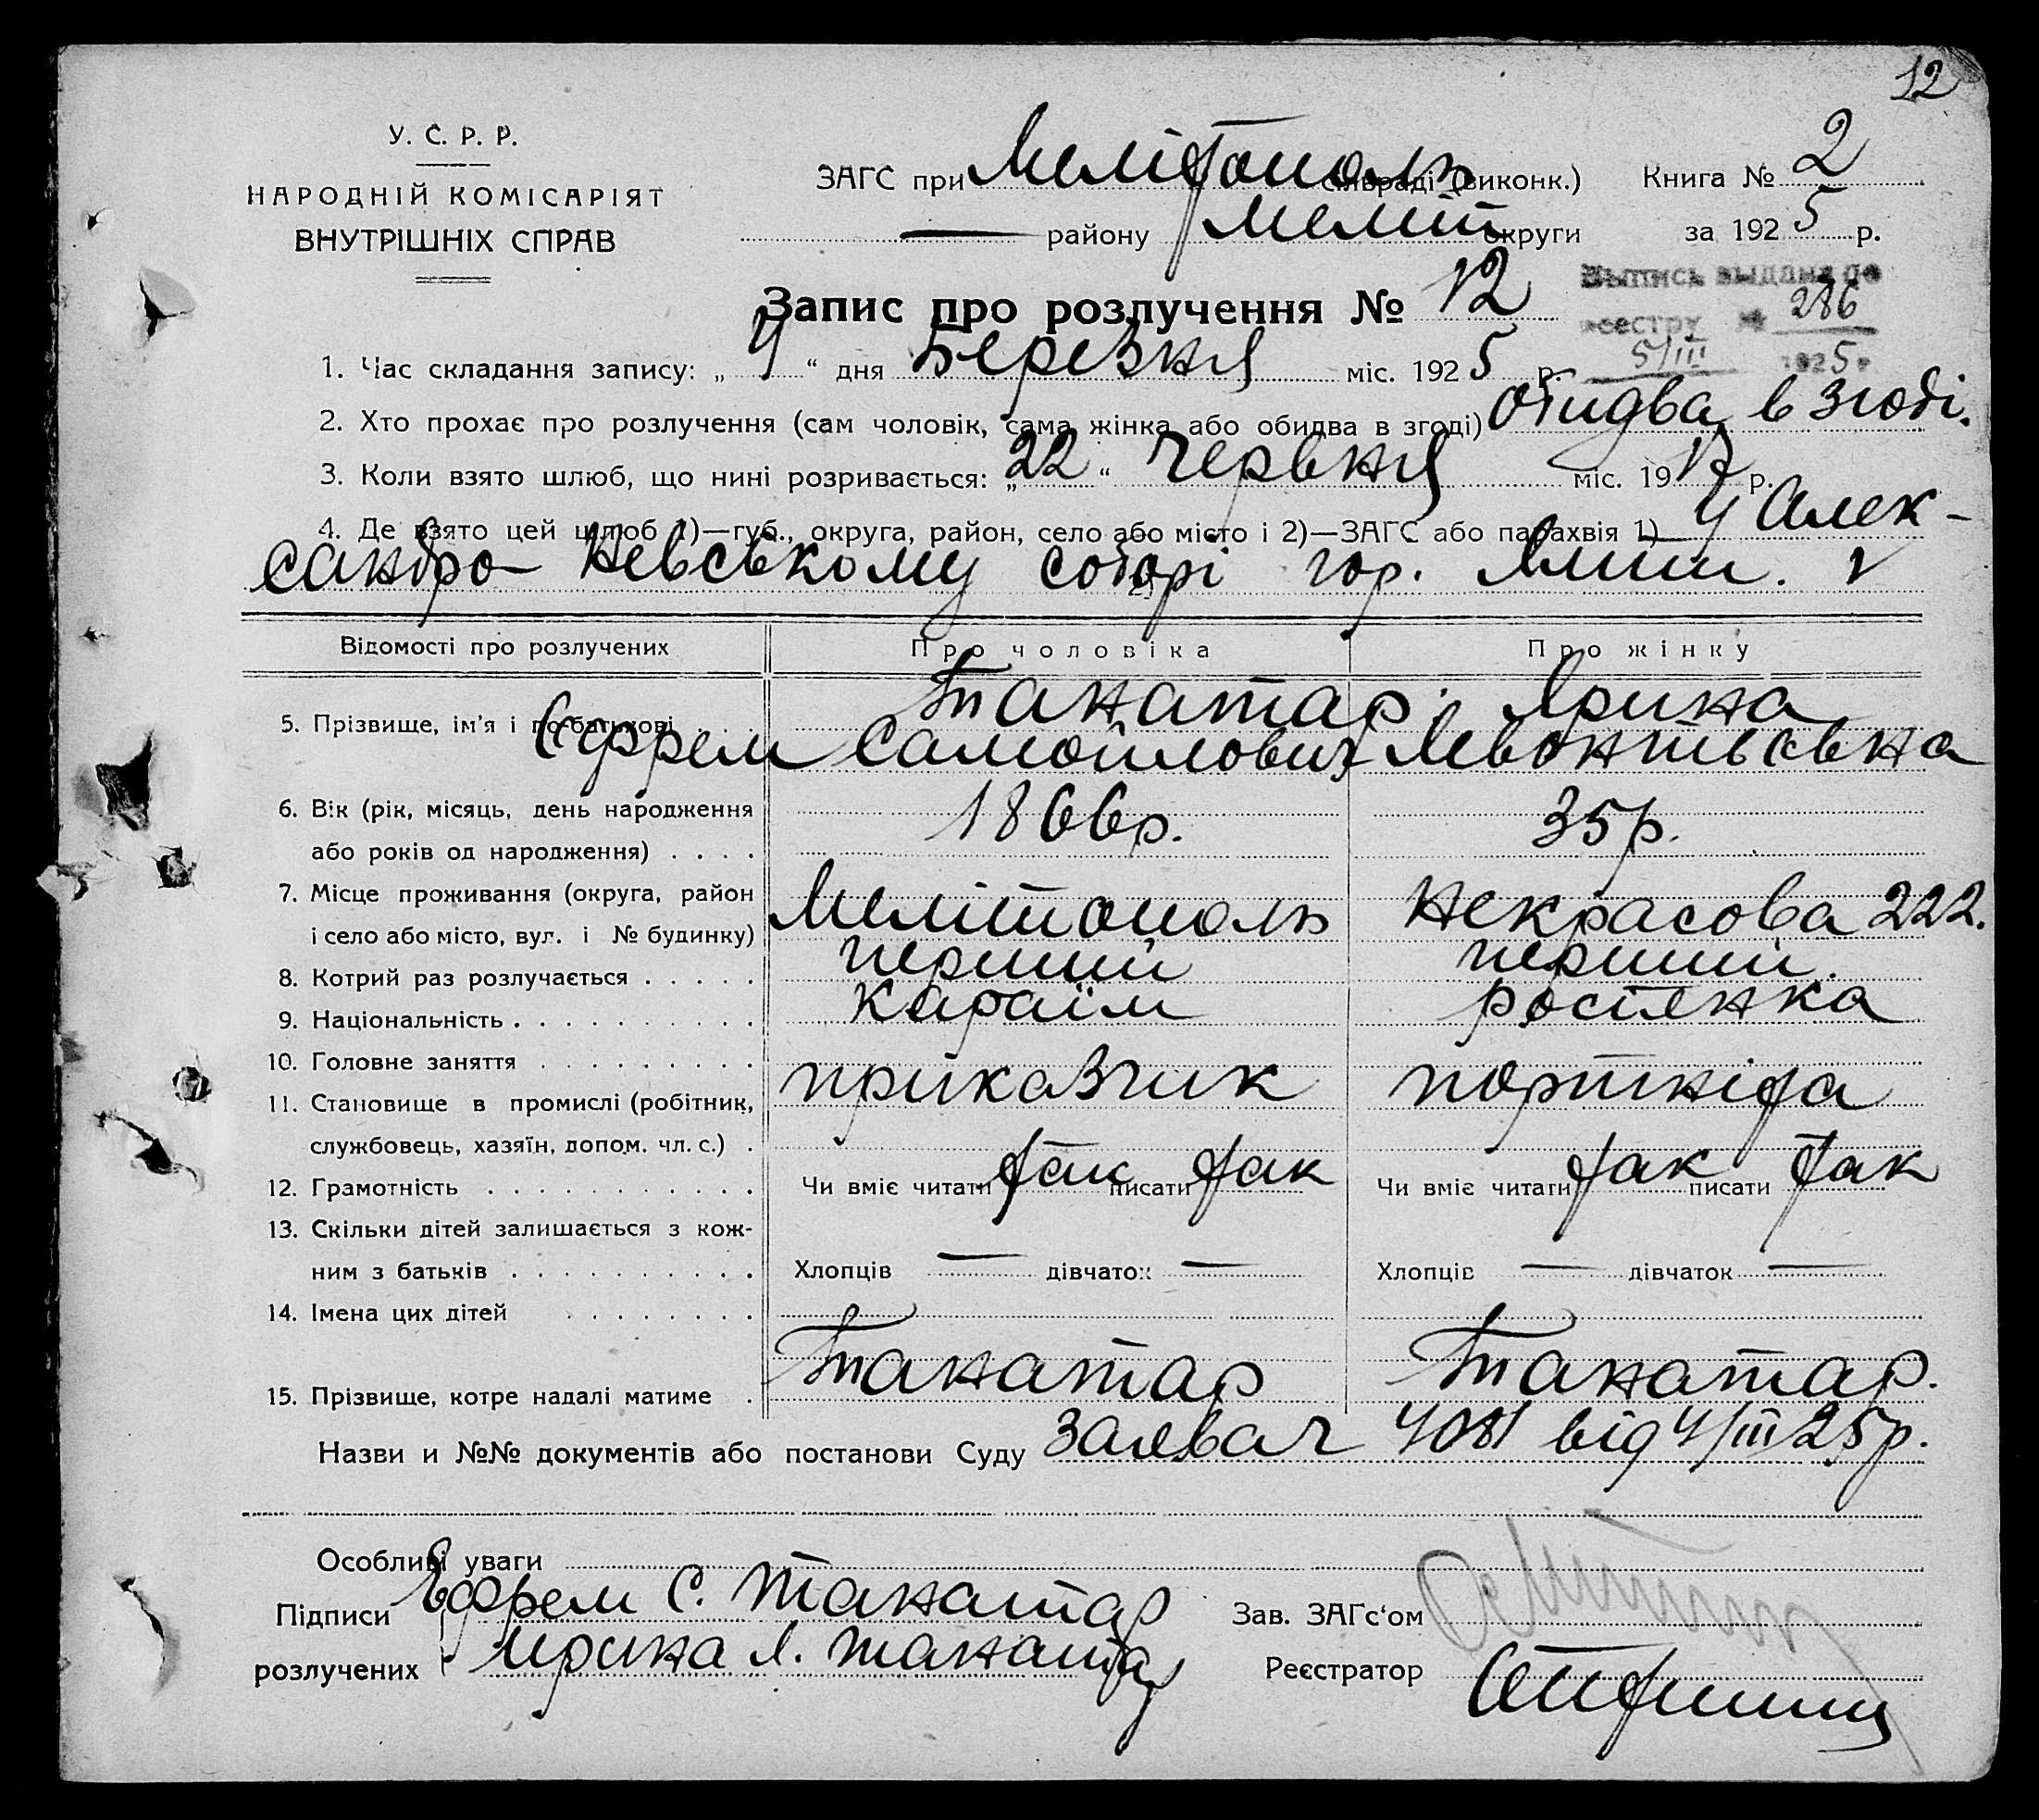 12
У. С. Р. Р.
НАРОДНІЙ КОМІСАРІЯТ
ВНУТРІШНІХ СПРАВ
ЗАГС при Мелітополь сільраді (виконк.) Книга № 2
— району Меліт округи за 1925 р.
Выпись выдана по
реестру № 286
5/III 1925 г
Запис про розлучення № 12
1. Час складання запису: „ 4 “ дня Березня міс. 1925 р.
2. Хто прохає про розлучення (сам чоловік, сама жінка або обидва в згоді) Обидва в згоді.
3. Коли взято шлюб, що нині розривається: „ 22 “ Червня міс. 1917 р.
4. Де взято цей шлюб 1)—губ., округа, район, село або місто і 2)—ЗАГС або парахвія 1) У Алек-
сандро-Невському соборі гор.
Відомості про розлучених Про чоловіка Про жінку
5. Прізвище, ім'я і по-батькові Танатар Ярина
Єфрем Самойлович Левонтьєвна
6. Вік (рік, місяць, день народження
або років од народження) . . . . 1866р. 35р.
7. Місце проживання (округа, район
і село або місто, вул. і № будинку) Мелітополь Некрасова 222.
8. Котрий раз розлучається . . . . . перший перший.
9. Національність . . . . . . . . . . караїм росіянка
10. Головне заняття . . . . . . . . .
11. Становище в промислі (робітник, приказчик портніха
службовець, хазяїн, допом. чл. с.) .
12. Грамотність . . . . . . . . . . . Чи вміє читати так писати так Чи вміє читати так писати так
13. Скільки дітей залишається з кож-
ним з батьків . . . . . . . . . . Хлопців — дівчаток — Хлопців — дівчаток —
14. Імена цих дітей . . . . . . . .
15. Прізвище, котре надалі матиме . Танатар Танатар.
Назви и №№ документів або постанови Суду від 4/III 25р.
Особливі уваги
Підписи Ефрем С. Танатар Зав. ЗАГс‘ом
розлучених Ирина Л. Танатар Реєстратор